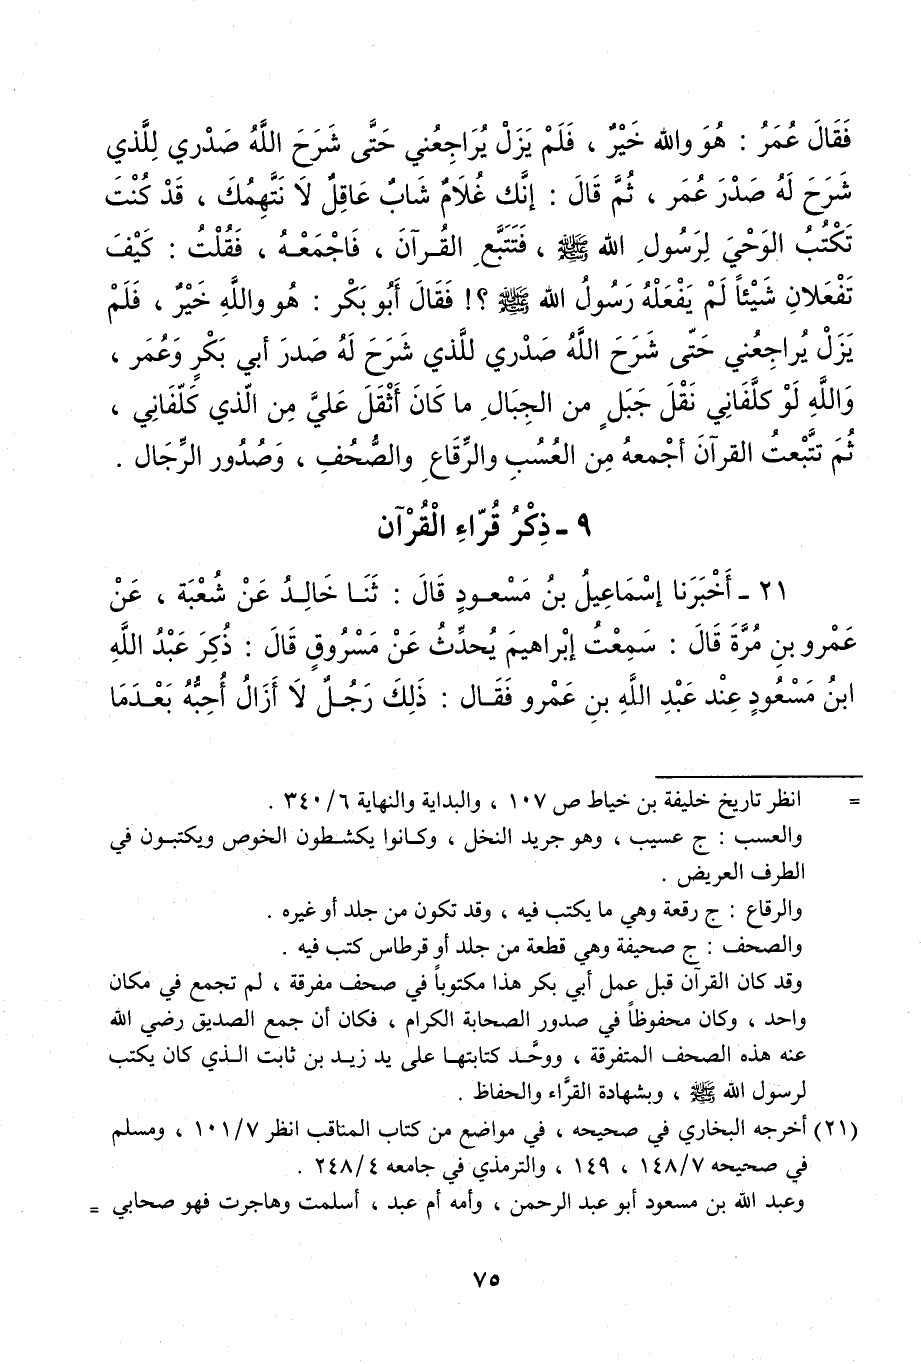 فَقَالَ عُمَرُ : هُوَ والله خَيْرٌ ، فَلَمْ يَزَلْ يُرَاجِعُني حَتَّى شَرَحَ اللَّهُ صَدْري لِلَّذي
شَرَحَ لَهُ صَدْرَ عُمَر ، ثُمَّ قَالَ : إنَّك غُلَامٌ شَابٌ عَاقِلٌ لَا نَتَّهِمُكَ ، قَدْ كُنْتَ
تَكْتُبُ الوَحْيَ لِرَسُولِ الله ﷺ ، فَتَتَبَّع القُرآنَ ، فَاجْمَعْهُ ، فَقُلْتُ : كَيْفَ
تَفْعَلانِ شَيْئاً لَمْ يَفْعَلْهُ رَسُولُ الله ﷺ ؟! فَقَالَ أَبُو بَكْر : هُو واللَّهِ خَيْرٌ ، فَلَمْ
يَزَلْ يُراجِعُني حَتّى شَرَحَ اللَّهُ صَدْري للَّذي شَرَحَ لَهُ صَدرَ أبي بَكْرٍ وَعُمَر ،
وَاللَّهِ لَوْ كلَّفَاني نَقْلَ جَبَلٍ من الجِبَالِ ما كَانَ أَثْقلَ عَليَّ مِن الّذي كَلّفَاني ،
ثُمَ تتَّبْعتُ القرآنَ أجْمعهُ مِن العُسُبِ والرِّقَاعِ والصُّحُفِ ، وَصُدُور الرِّجَال .
٩ - ذِكْرُ قُرّاءِ الْقُرْآن
٢١ - أَخْبَرَنا إسْمَاعِيلُ بنُ مَسْعودٍ قَالَ : ثَنَا خَالِدُ عَنْ شُعْبَة ، عَنْ
عَمْرو بنِ مُرَّةَ قَالَ : سَمِعْتُ إبْراهيمَ يُحدِّثُ عَنْ مَسْرُوقٍ قَالَ : ذُكِرَ عَبْدُ اللَّهِ
ابنُ مَسْعُودٍ عِنْد عَبْدِ اللَّهِ بنِ عَمْرو فَقَال : ذَلِكَ رَجُلٌ لَا أَزَالُ أُحِبُّهُ بَعْدَمَا
= انظر تاريخ خليفة بن خياط ص ١٠٧ ، والبداية والنهاية ٣٤٠/٦ .
والعسب : ج عسيب ، وهو جريد النخل ، وكانوا يكشطون الخوص ويكتبون في
الطرف العريض .
والرقاع : ج رقعة وهي ما يكتب فيه ، وقد تكون من جلد أو غيره .
والصحف : ج صحيفة وهي قطعة من جلد أو قرطاس كتب فيه .
وقد كان القرآن قبل عمل أبي بكر هذا مكتوباً في صحف مفرقة ، لم تجمع في مكان
واحد ، وكان محفوظاً في صدور الصحابة الكرام ، فكان أن جمع الصديق رضي الله
عنه هذه الصحف المتفرقة ، ووحَّد كتابتها على يد زيد بن ثابت الذي كان يكتب
لرسول الله ﷺ ، وبشهادة القرَّاء والحفاظ .
(٢١) أخرجه البخاري في صحيحه ، في مواضع من كتاب المناقب انظر ١٠١/٧ ، ومسلم
في صحيحه ١٤٨/٧ ، ١٤٩ ، والترمذي في جامعه ٢٤٨/٤ .
وعبد الله بن مسعود أبو عبد الرحمن ، وأمه أم عبد ، أسلمت وهاجرت فهو صحابي =
٧٥